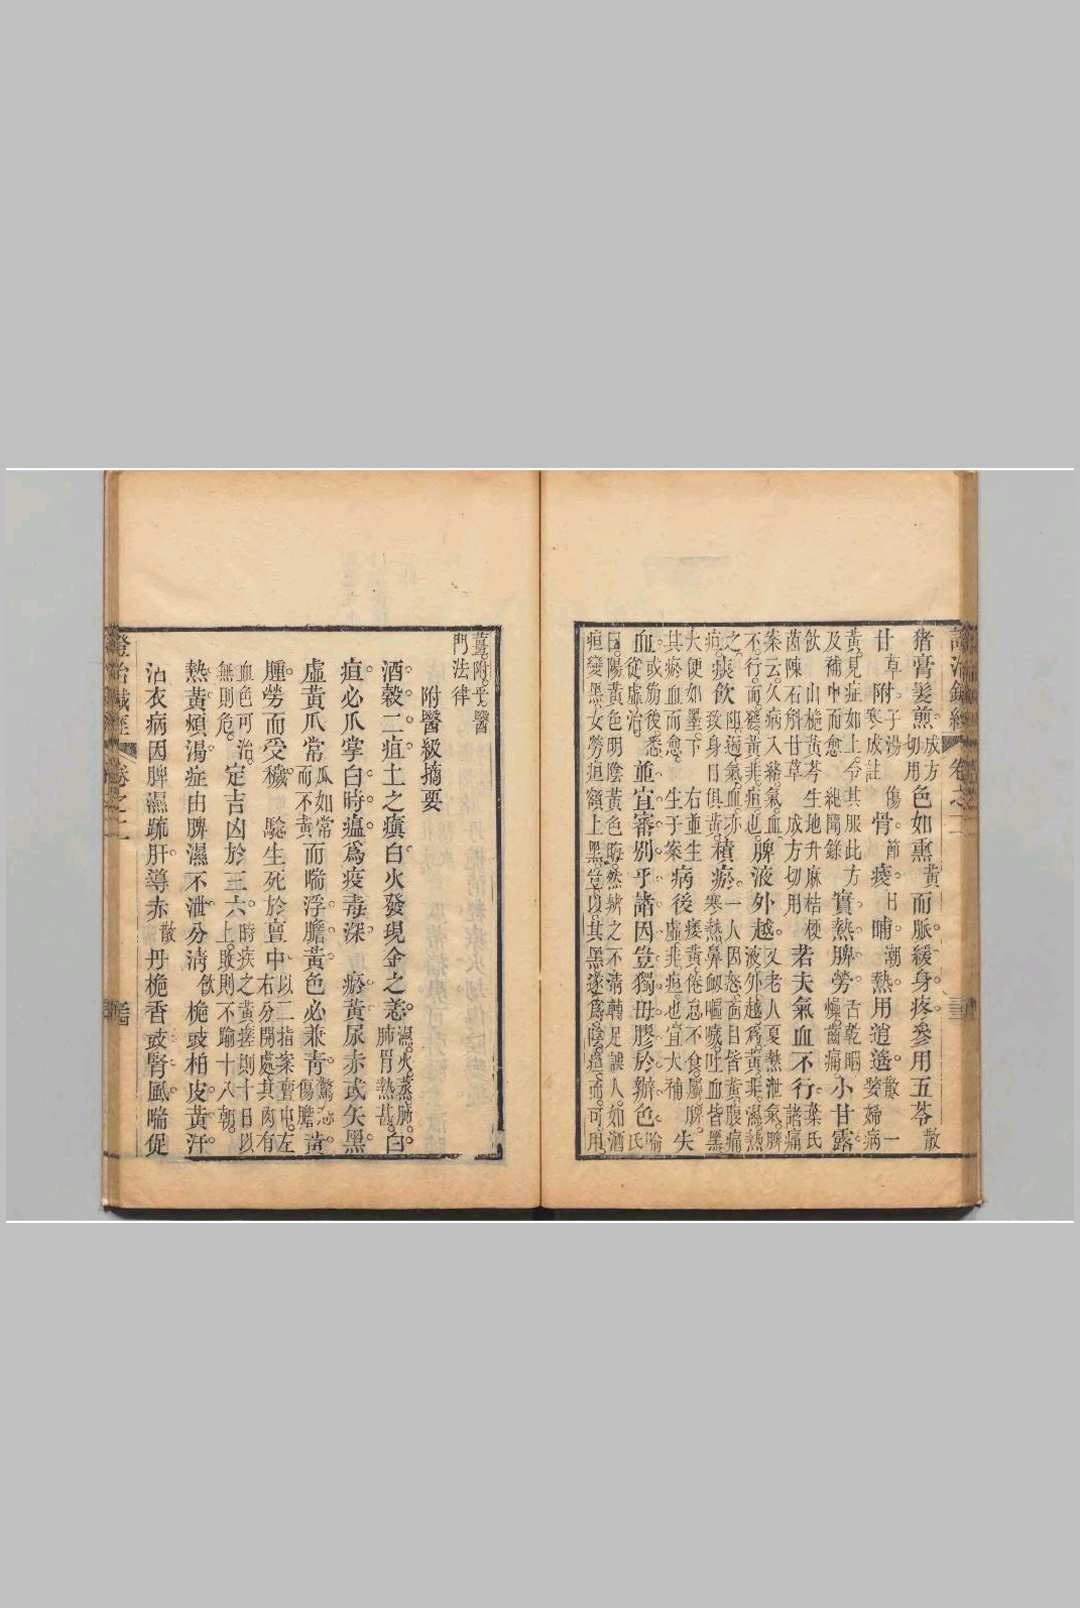 豬膏髮煎成方切用色如熏黃而脈緩身疼參用五苓散一
甘草附子湯寒成註傷骨節痠日晡潮熱用逍遙散娶婦病
黃見症如上令其服此方及補中而愈實熱脾勞舌乾咽懶齒痛小甘露
飲山梔黃芩生地升麻桔梗茵陳石斛甘草成方切用若夫氣血不行葉氏諸痛
案云久病入絡氣血不行而黃非疸也脾液外越又老人夏熱泄氣脾液外越爲黃非濕熱
之痰飲阻遏氣血亦致身目俱黃積瘀一人因怒面目皆黃腹痛寒熱鼻衄嘔噦吐血皆黑
大便如墨下其瘀血而愈右重生生于案病後痿黃倦怠不食屬脾虛非疸也宜大補失
血或勞後悉從虛治並宜審別乎諸因豈獨毋膠於辦色喻氏
曰陽黃色明陰黃色晦然辨之不清轉足誤人如酒疸變黑女勞疸額上黑豈以其黑遂爲陰疸而可用
薑附乎醫門法律
附醫級摘要
酒穀二疸土之瘨白火發現金之恙濕火蒸肺肺胃熱甚白
疸必爪掌白時瘟爲疫毒深瘀黃尿赤或矢黑
虛黃爪常爪如常而不黃而喘浮膽黃色必兼青驚恐傷膽黃
腫勞而受穢驗生死於亶中以二指案亶中左右分開處其肉有
血色可治無則危定吉凶於三六時疾之黃瘥則十日以上敗則不踰十八朝
熱黃煩渴症由脾濕不泄分淸飲梔豉柏皮黃汗
沾衣病因脾濕疏肝導赤散丹梔香豉腎風喘促
證治鍼經 卷之二